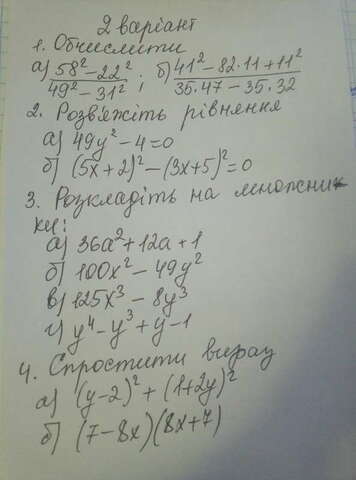 2 варіант
1. Обчислити
а) 58² – 22² / 49² – 31² ; б) 41² – 82·11 + 11² / 35·47 – 35·32
2. Розв'яжіть рівняння
а) 49y² – 4 = 0
б) (5x + 2)² – (3x + 5)² = 0
3. Розкладіть на множник
ки:
а) 36a² + 12a + 1
б) 100x² – 49y²
в) 125x³ – 8y³
г) y⁴ – y³ + y – 1
4. Спростити вираз
а) (y – 2)² + (1 + 2y)²
б) (7 – 8x)(8x + 7)